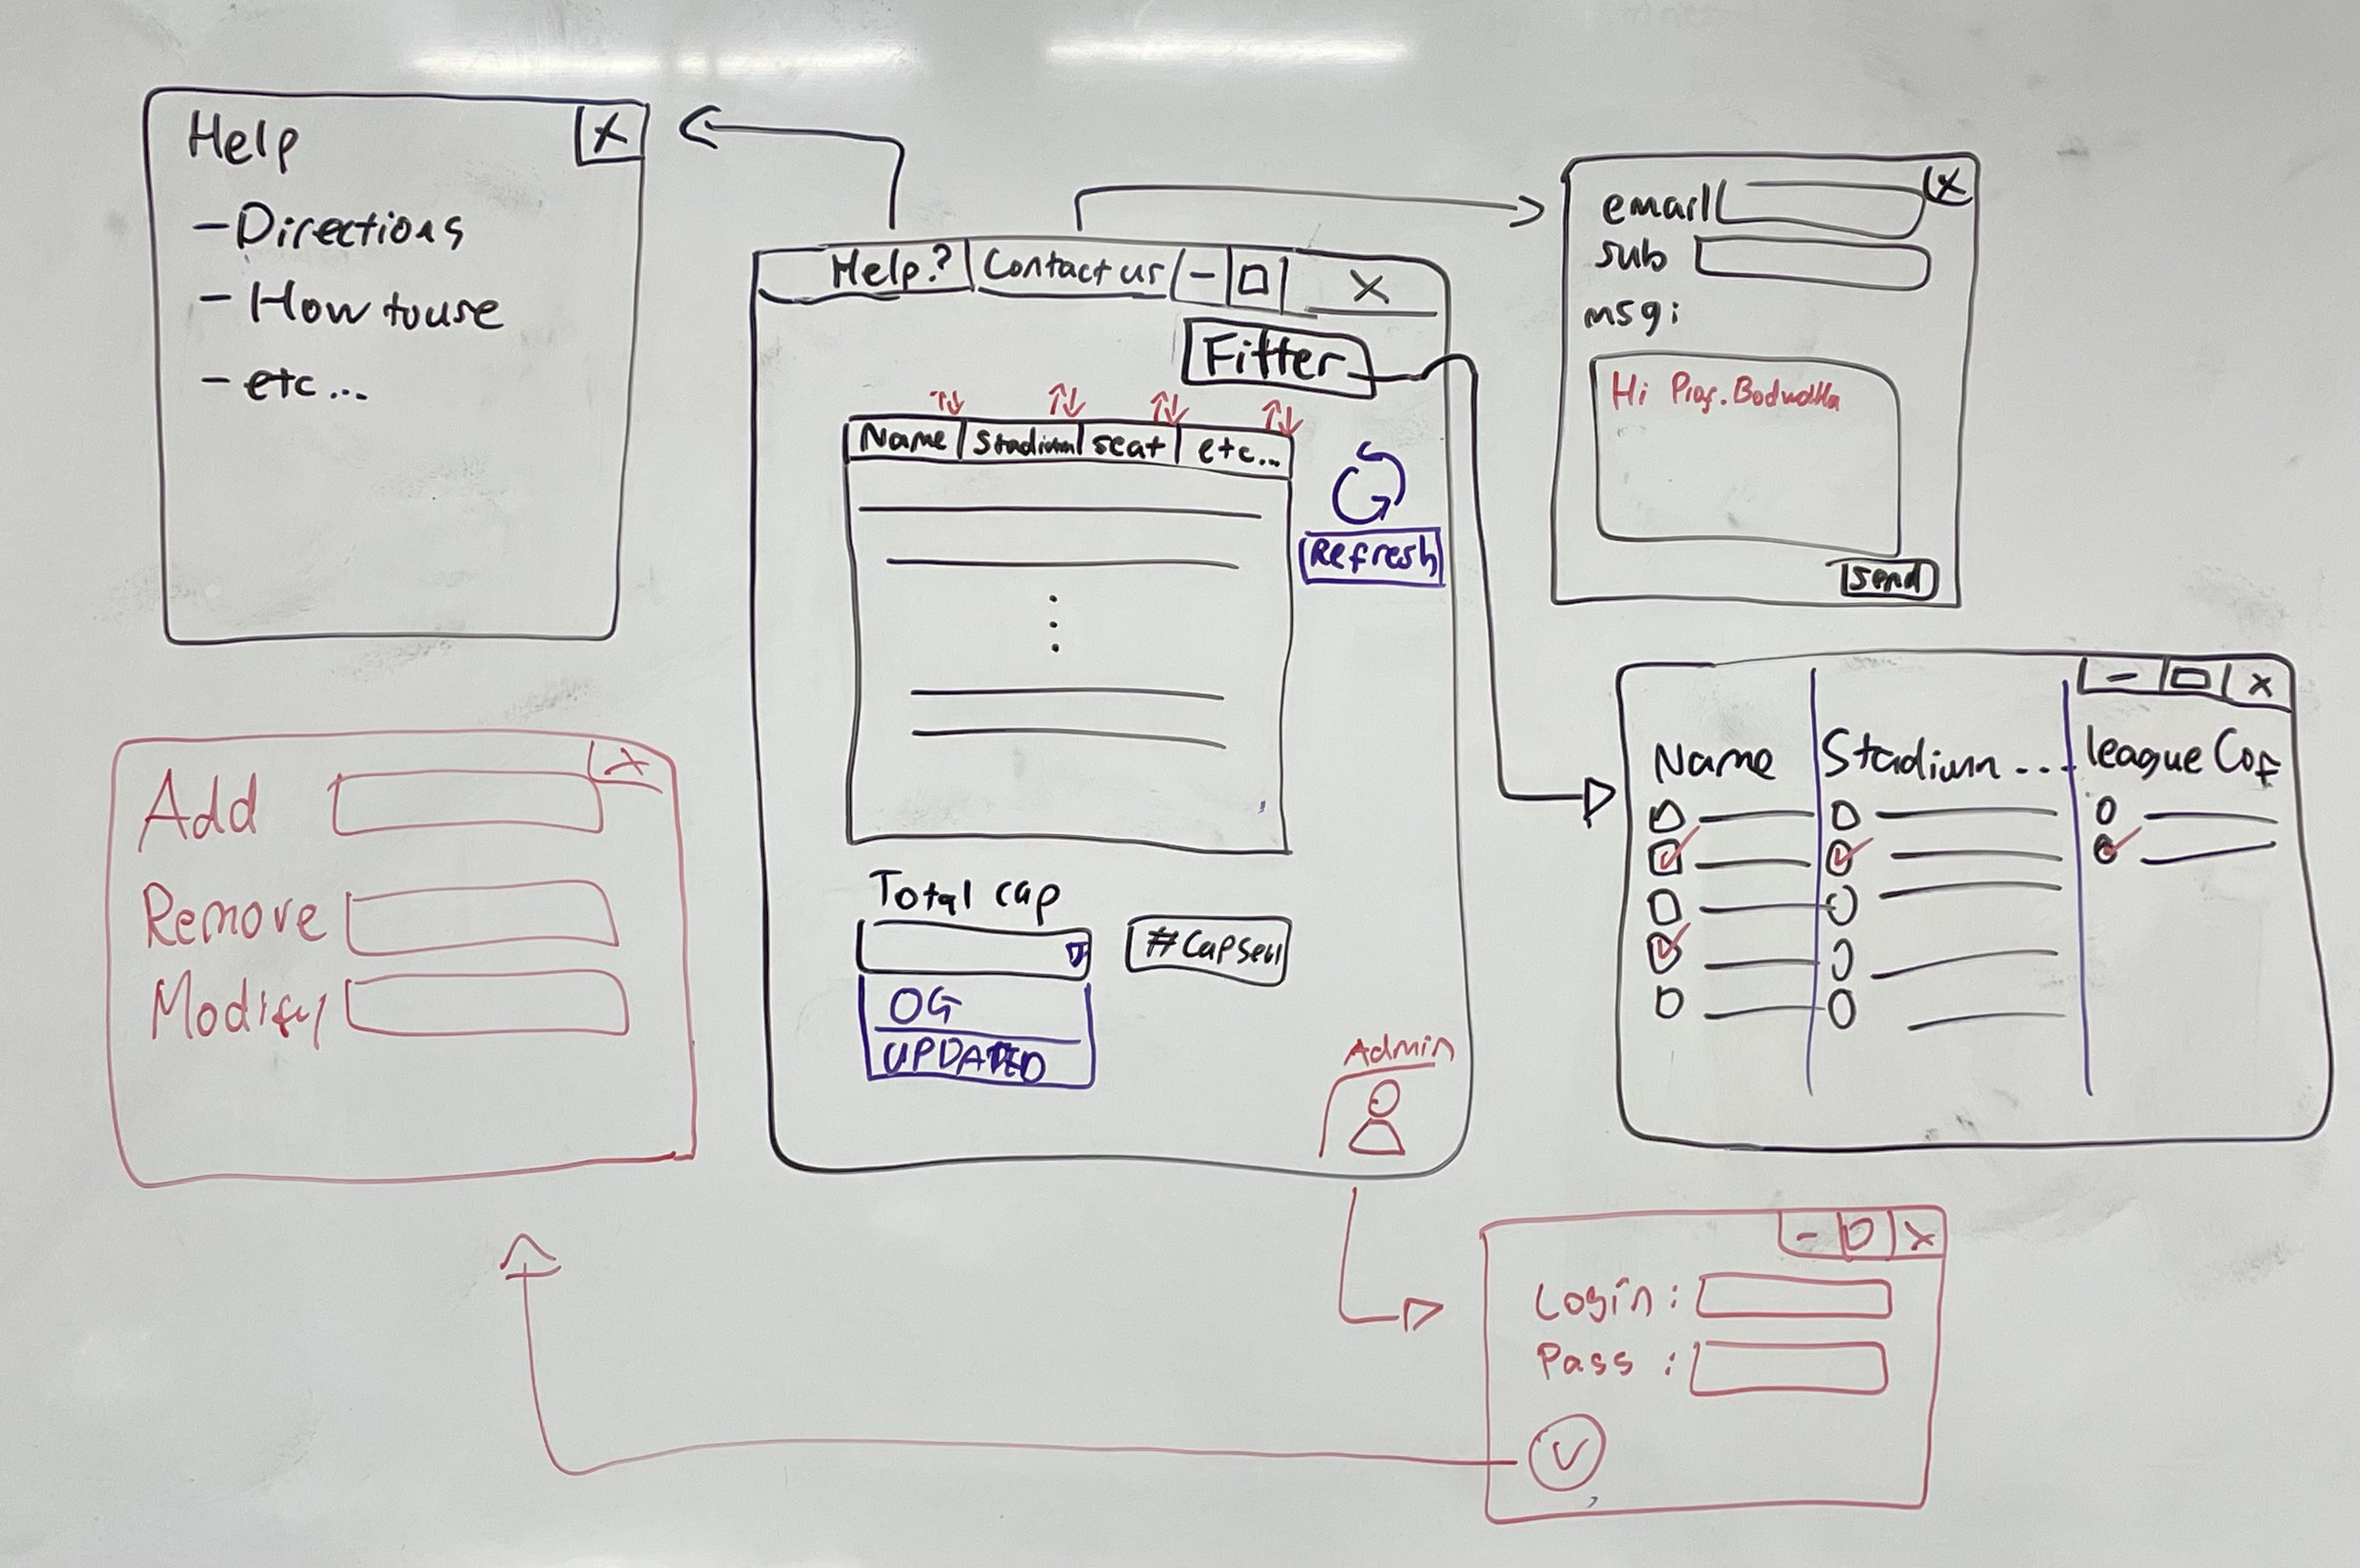 Help X
- Directions
- How to use
- etc...
Help? Contact us - X
Filter
Name Stadium seat etc...
Refresh
Total cap
OG
UPDATED
Admin
email X
sub
msg:
Hi Prof.
send
- X
Name Stadium ... league
Add X
Remove
Modify
- X
Login:
Pass :